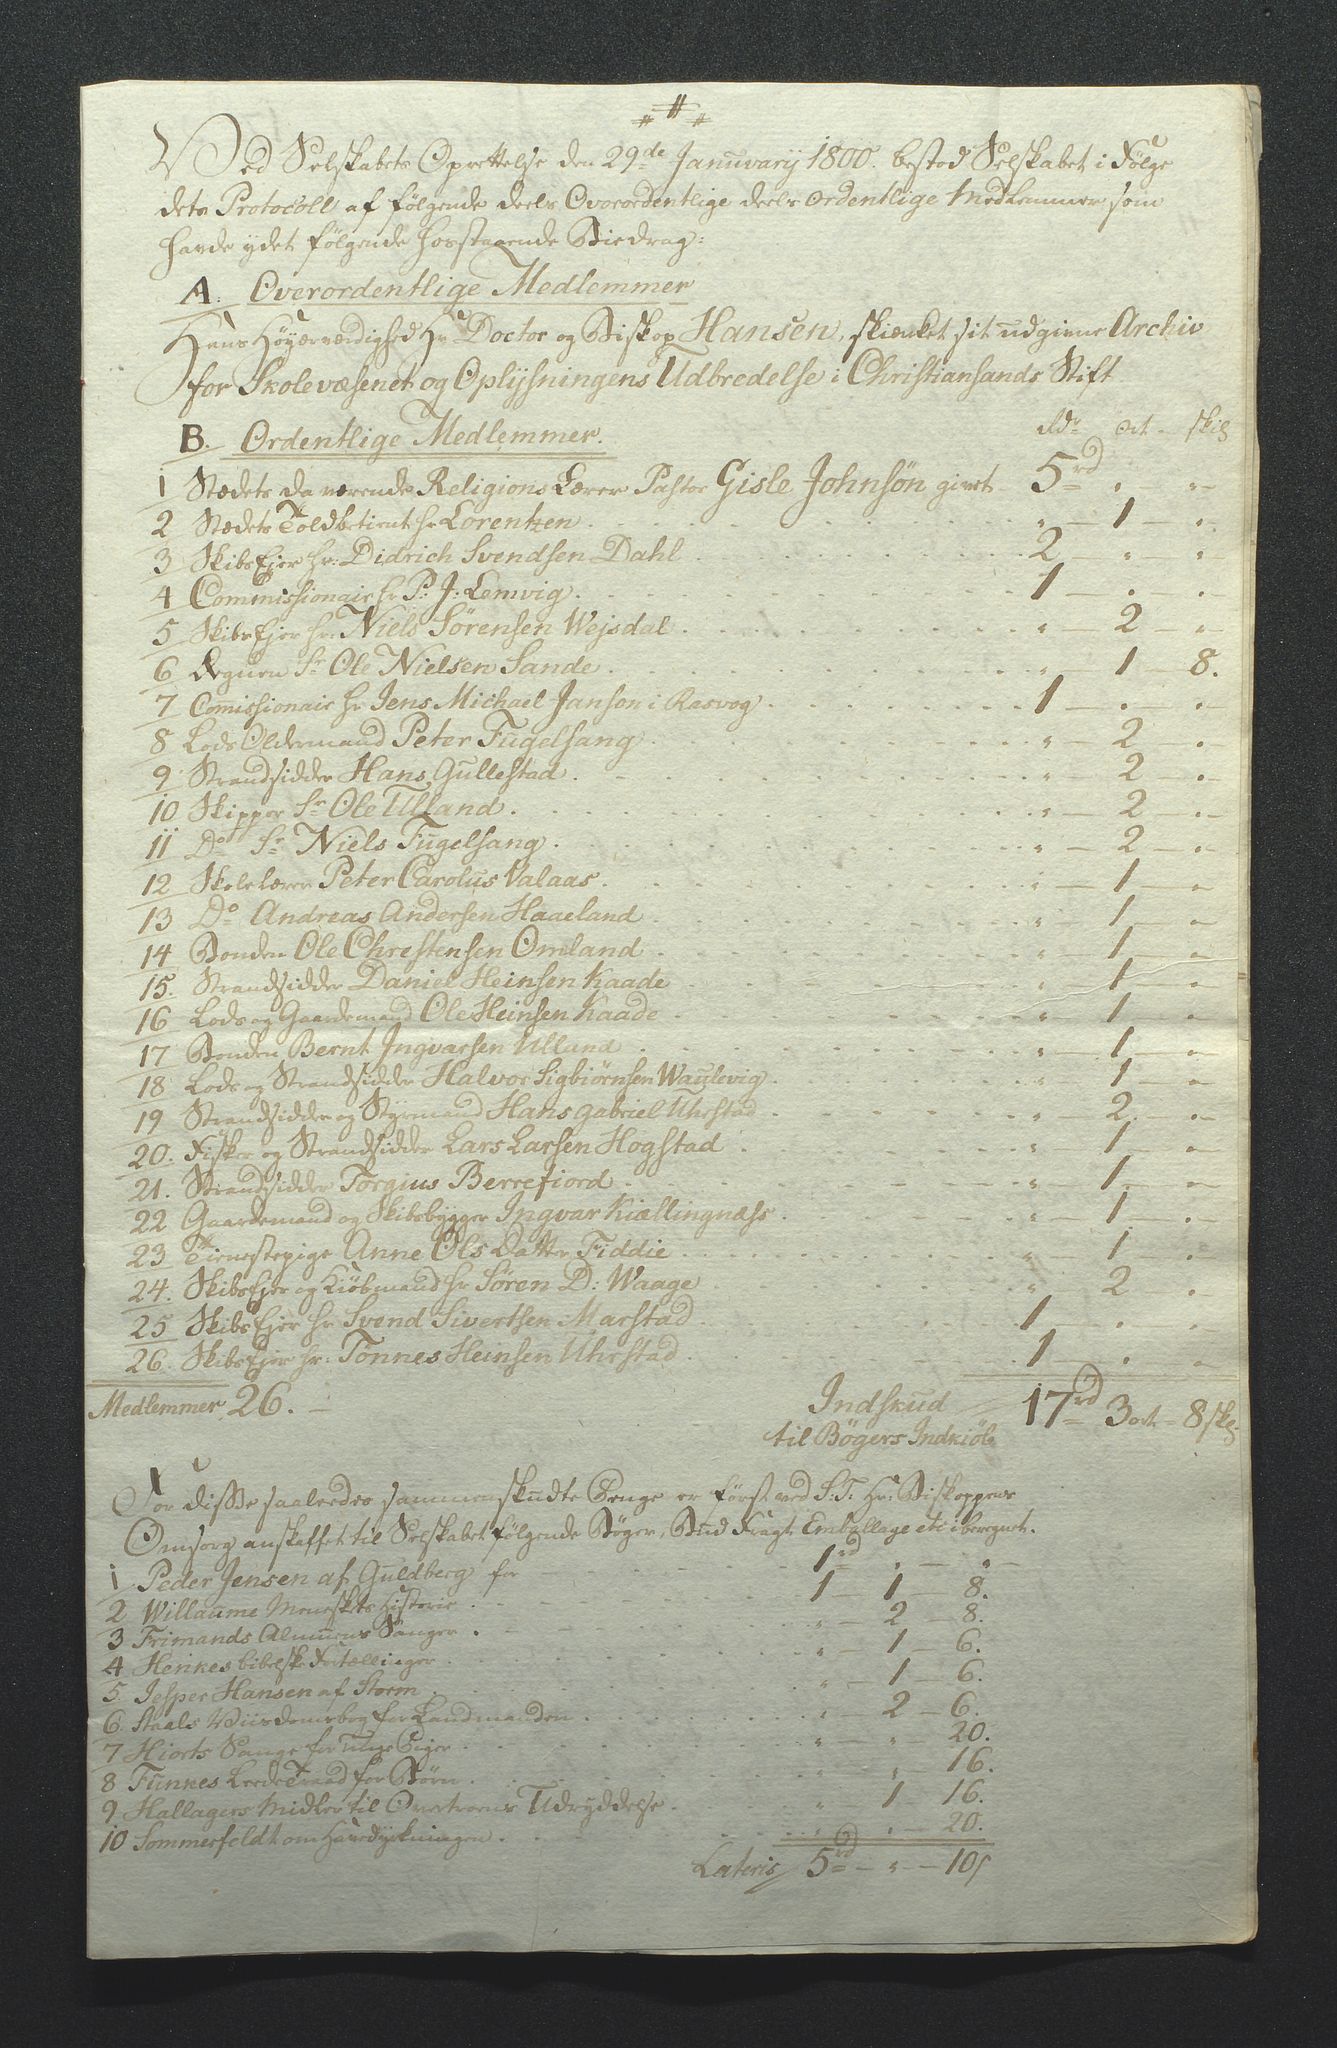 Ved Selskabets Oprettelse den 29de Januarij 1800. bestod Selskabet i Følge
dets Protocoll af følgende deels Overordentlige deels ordentlige Medlemmer som
havde ydet følgende hosstaaende Biedrag:
A. Overordentlige Medlemmer
Hans Höyærværdighed Hr Doctor og Biskop Hansen, skienket sit udgivne Archiv
for Skolevæsenet og Oplysningens Udbredelse i Christiansands Stift
B. Ordentlige Medlemmer. Rdr Ort - skil
1 Stædets da værende Religions Lærer Pastor Gisle Johnsön givet 5rd " "
2 Stædets Toldbetient hr Lorentzen " 1 "
3 Skibs Ejer hr: Didrich Svendsen Dahl 2 " "
4 Commissionair hr P: J: Lemvig 1 " "
5 Skibs Ejer hr: Niels Sørensen Wejsdal " 2 "
6 Degnen Sr Ole Nielsen Sande " 1 8.
7 Comissionair hr Jens Michael Janson i Rasvog 1 " "
8 Lods Oldermand Peter Fugelsang " 2 "
9 Strandsidder Hans Gullestad " 2 "
10 Skipper Sr Ole Ulland " 2 "
11 Do Sr Niels Fugelsang " 2 "
12 Skolelærer Peter Carolus Valaas " 1 "
13 Do Andreas Andersen Haaeland " 1 "
14 Bonden Ole Chrestensen Omland " 1 "
15. Strandsidder Daniel Heinsen Kaade " 1 "
16 Lods og Gaardemand Ole Heinsen Kaade " 1 "
17 Bonden Bernt Jngvarsen Ulland " 1 "
18 Lods og Strandsidder Halvor Sigbiörnsen Waulevig " 1 "
19 Strandsidder og Styrmand Hans Gabriel Uhrstad " 2 "
20. Fisker og Strandsidder Lars Larsen Hogstad " 1 "
21. Strandsidder Torgius Berrefiord " 1 "
22 Gaardemand og Skibsbygger Ingvar Kiællingnæss " 1 "
23 Tienestepige Anne Ols Datter Fiddie " 1 "
24. Skibs Ejer og Kiöbmand hr Sören D: Waage " 2 "
25 Skibs Ejer hr Svend Sivertsen Marstad 1 " "
26. Skibs Ejer hr: Tønnes Heinsen Uhrstad 1 " "
Medlemmer 26. Indskud 17rd 3 ort 8 skg
til Bögers Indkiöb
For disse saaledes sammenskudte Penge er först ved S: T: Hr: Biskoppens
Omsorg anskaffet til Selskabet følgende Bøger, Bud Fragt Emballage etc iberegnet.
1 Peder Jensen af Guldberg for 1rd " "
2 Willaume Meneskets Historie 1 1 8.
3 Frimands Almuens Sanger " 2 8.
4 Henkes bibelske Fortællinger " 1 6.
5 Jesper Hansen af Storm " 1 6.
6 Staals Viisdomsbog for Landmanden " 2 6.
7 Hiorts Sange for unge Piger " " 20.
8 Funkes Leede Traad for Börn " " 16.
9 Hallagers Midler til Overtroens Udryddelse " 1 16.
10 Sommerfeldt om Havedyrkningen " " 20.
Lateris 5rd " 10